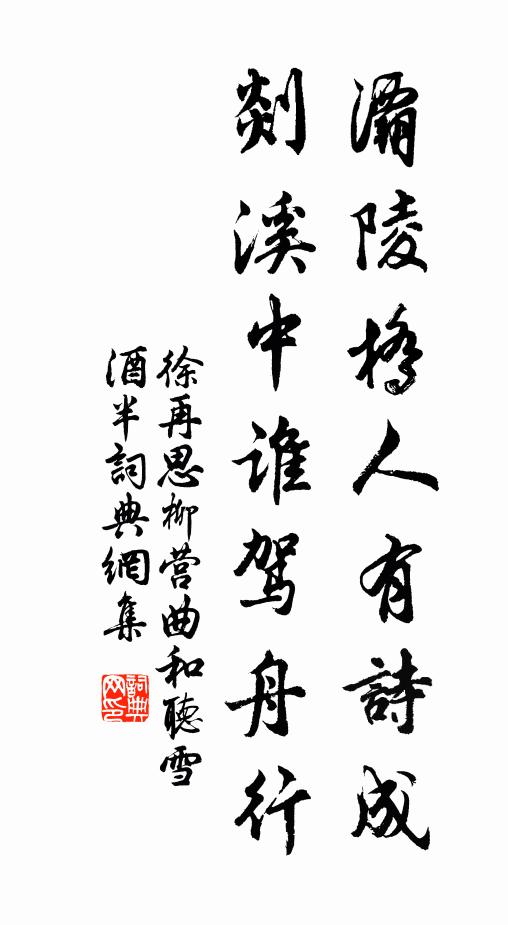 灞陵橋人有詩成
剡溪中誰駕舟行
徐再思柳营曲和聽雪
酒半詞典網集
詞典
网印